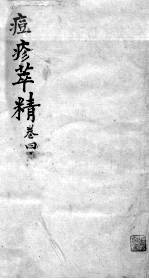 痘疹萃精卷四